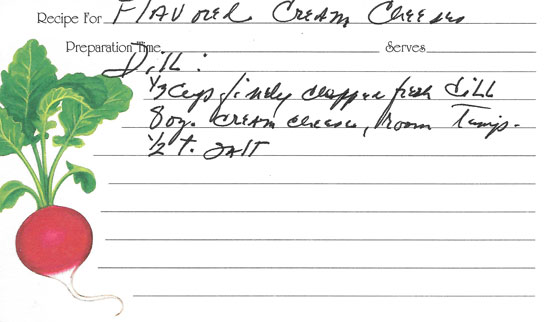 Recipe For Flavored Cream Cheeses
Preparation Time Serves
Dill:
1/3 Cup finely chopped fresh dill
8 oz. cream cheese, room Temp.
1/2 t. salt